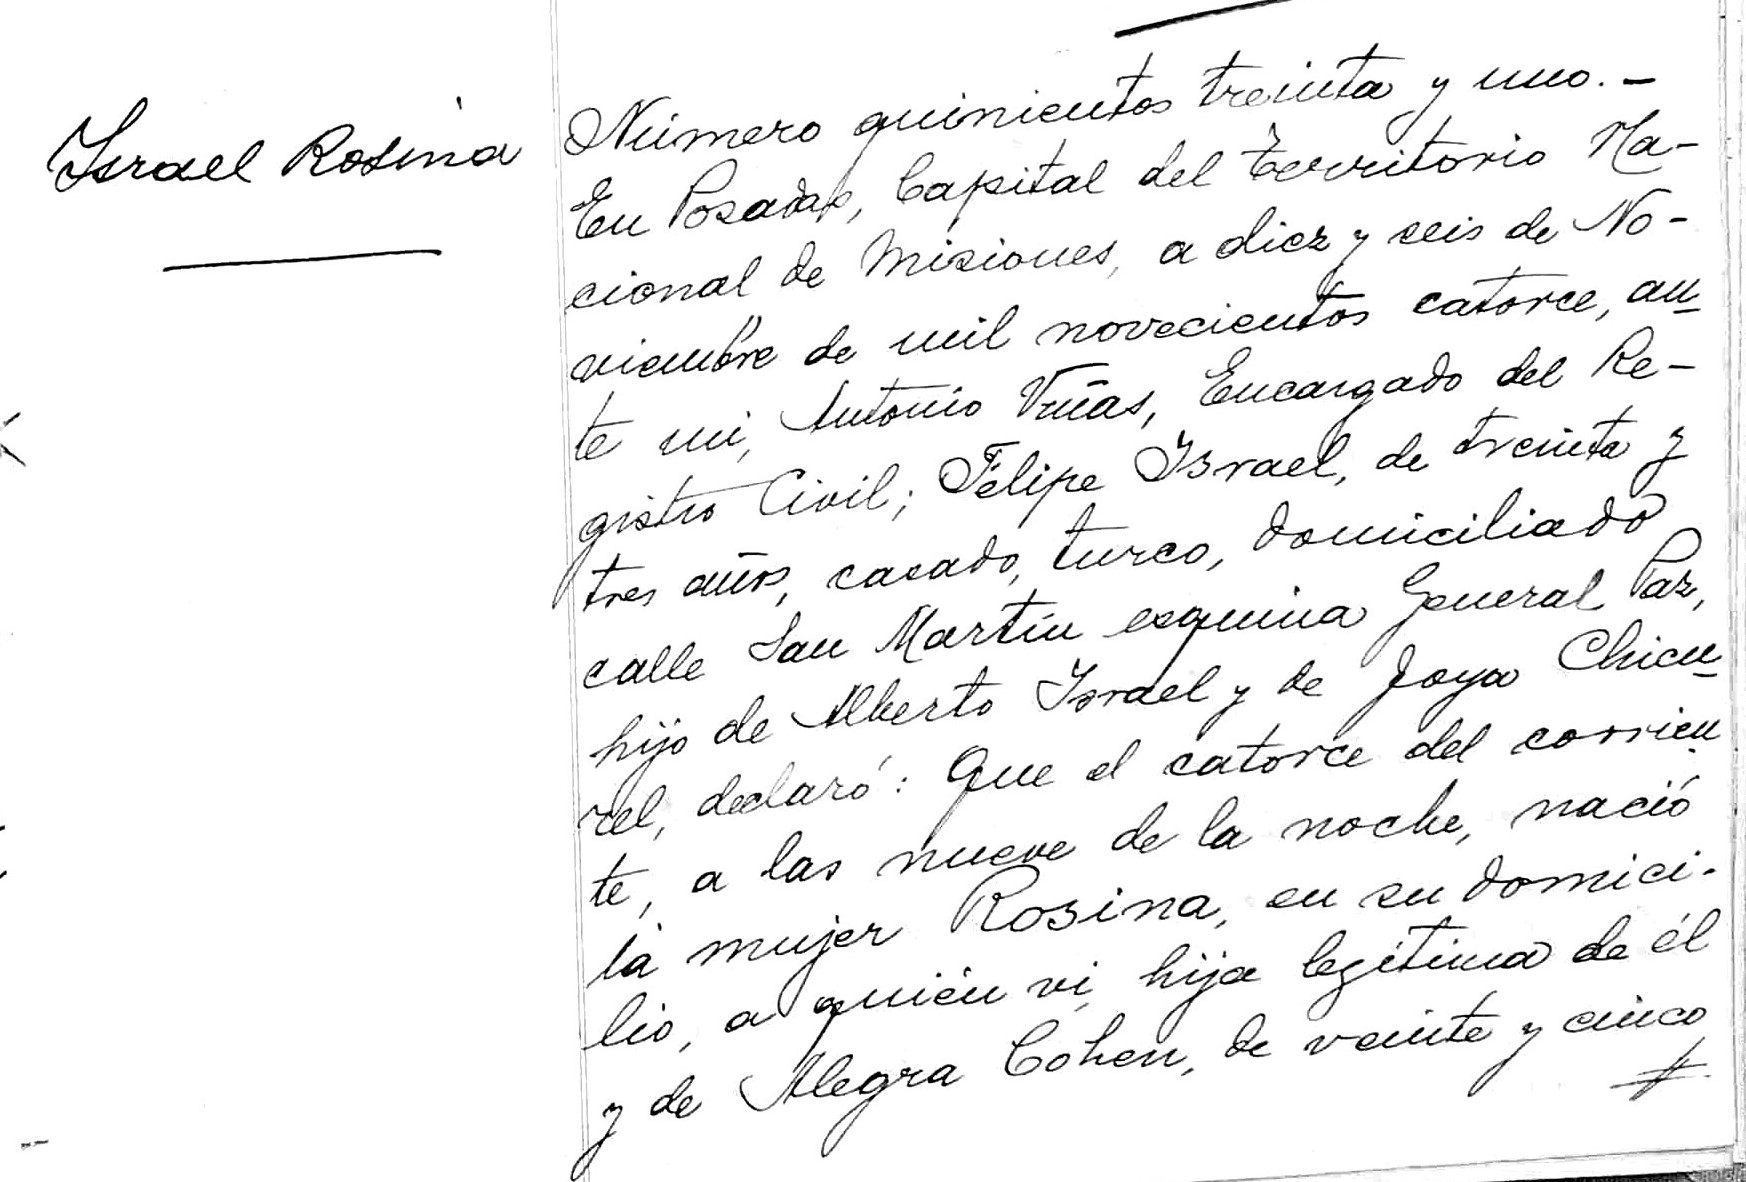 Israel Rosina
Número quinientos treinta y uno.-
En Posadas, Capital del Territorio Na-
cional de Misiones, a diez y seis de No-
viembre de mil novecientos catorce, an-
te mi, Antonio Viñas, Encargado del Re-
gistro Civil; Felipe Israel, de treinta y
tres años, casado, turco, domiciliado
calle San Martín esquina General Paz,
hijo de Alberto Israel y de Joya Chicu-
rel, declaró: Que el catorce del corrien
te, a las nueve de la noche, nació
la mujer Rosina, en su domici-
lio, a quién vi, hija legítima de él
y de Alegra Cohen, de veinte y cinco